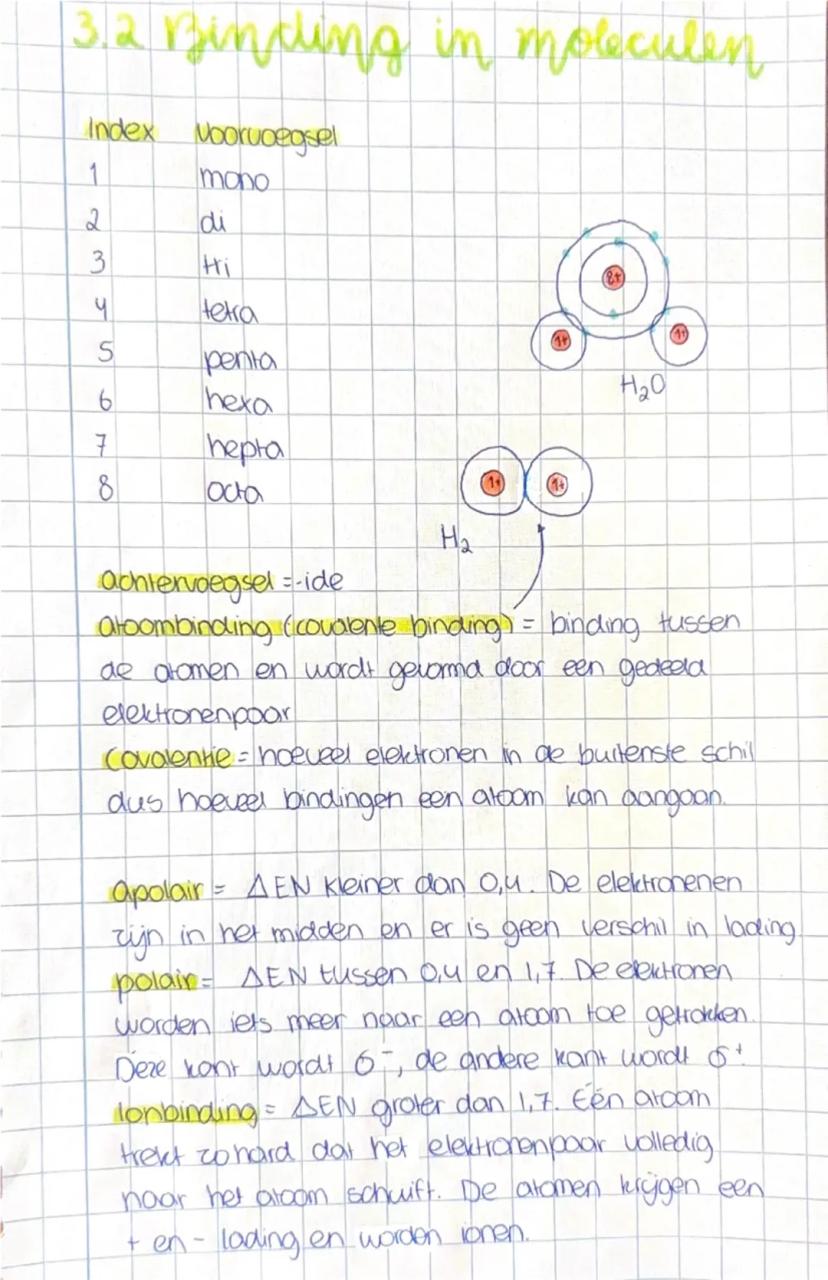 3.2 Binding in moleculen
Index voorvoegsel
1 mono
2 di
3 tri
4 tetra
5 penta
6 hexa
7 hepta
8 octa
8+
1+ 1+
H₂O
1+ 1+
H₂
achtervoegsel = -ide
atoombinding (covalente binding) = binding tussen
de atomen en wordt gevormd door een gedeeld
elektronenpaar
Covalentie = hoeveel elektronen in de buitenste schil
dus hoeveel bindingen een atoom kan aangaan.
apolair = ΔEN kleiner dan 0,4. De elektronenen
zijn in het midden en er is geen verschil in lading.
polair = ΔEN tussen 0,4 en 1,7. De elektronen
worden iets meer naar een atoom toe getrokken.
Deze kant wordt δ⁻, de andere kant wordt δ⁺.
Ionbinding = ΔEN groter dan 1,7. Eén atoom
trekt zo hard dat het elektronenpaar volledig
naar het atoom schuift. De atomen krijgen een
+ en - lading en worden ionen.